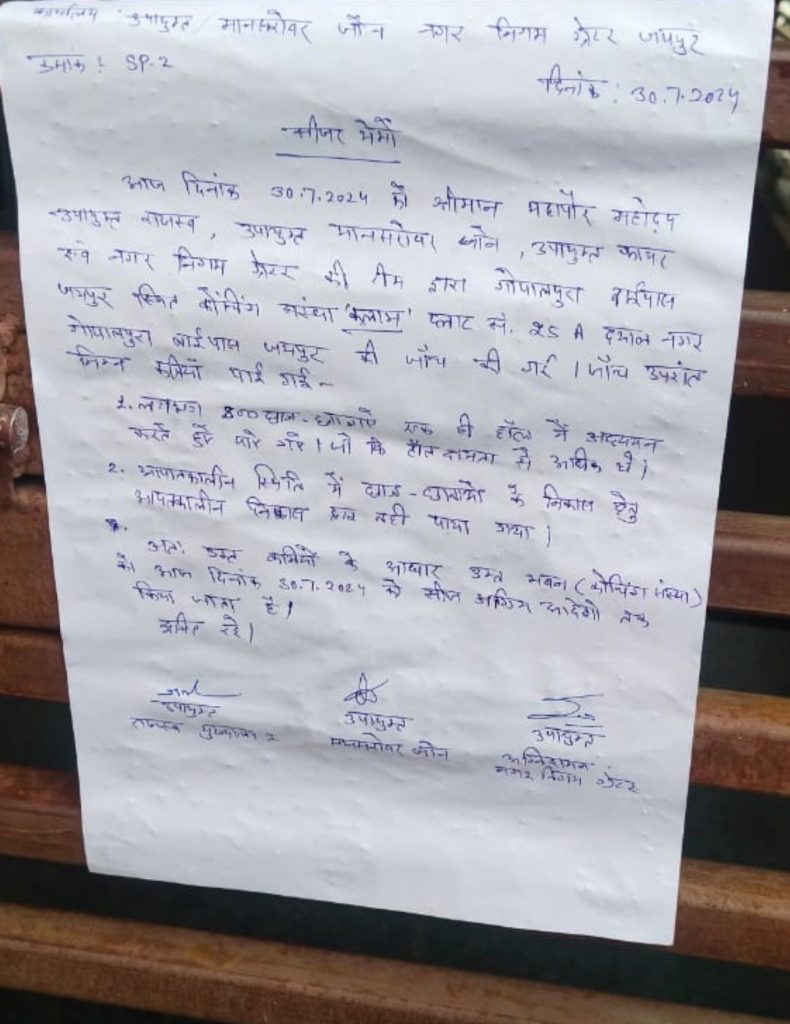 कार्यालय उपायुक्त मानसरोवर जोन नगर निगम ग्रेटर जयपुर
क्रमांक : SP-2
दिनांक : 30.7.2024
सीजर मेमो
आज दिनांक 30.7.2024 को श्रीमान महापौर महोदय
उपायुक्त राजस्व, उपायुक्त मानसरोवर जोन, उपायुक्त फायर
एवं नगर निगम ग्रेटर की टीम द्वारा गोपालपुरा बाईपास
जयपुर स्थित कोचिंग संस्था 'कलाम' प्लाट सं. 25 A दयाल नगर
गोपालपुरा बाईपास जयपुर की जाँच की गई । जाँच उपरांत
निम्न कमियाँ पाई गई -
1. लगभग 800 छात्र-छात्राऐं एक ही हॉल में अध्ययन
करते हुए पाऐ गऐ । जो कि हॉल क्षमता से अधिक है ।
2. आपातकालीन स्थिति में छात्र-छात्राओं के निकास हेतु
आपातकालीन निकास द्वार नही पाया गया ।
अतः उक्त कमियों के आधार उक्त भवन (कोचिंग संस्था)
को आज दिनांक 30.7.2024 को सीज अग्रिम आदेशों तक
किया जाता है ।
सूचित रहे ।
उपायुक्त
राजस्व मुख्यालय
उपायुक्त
मानसरोवर जोन
उपायुक्त
अग्निशमन
नगर निगम ग्रेटर